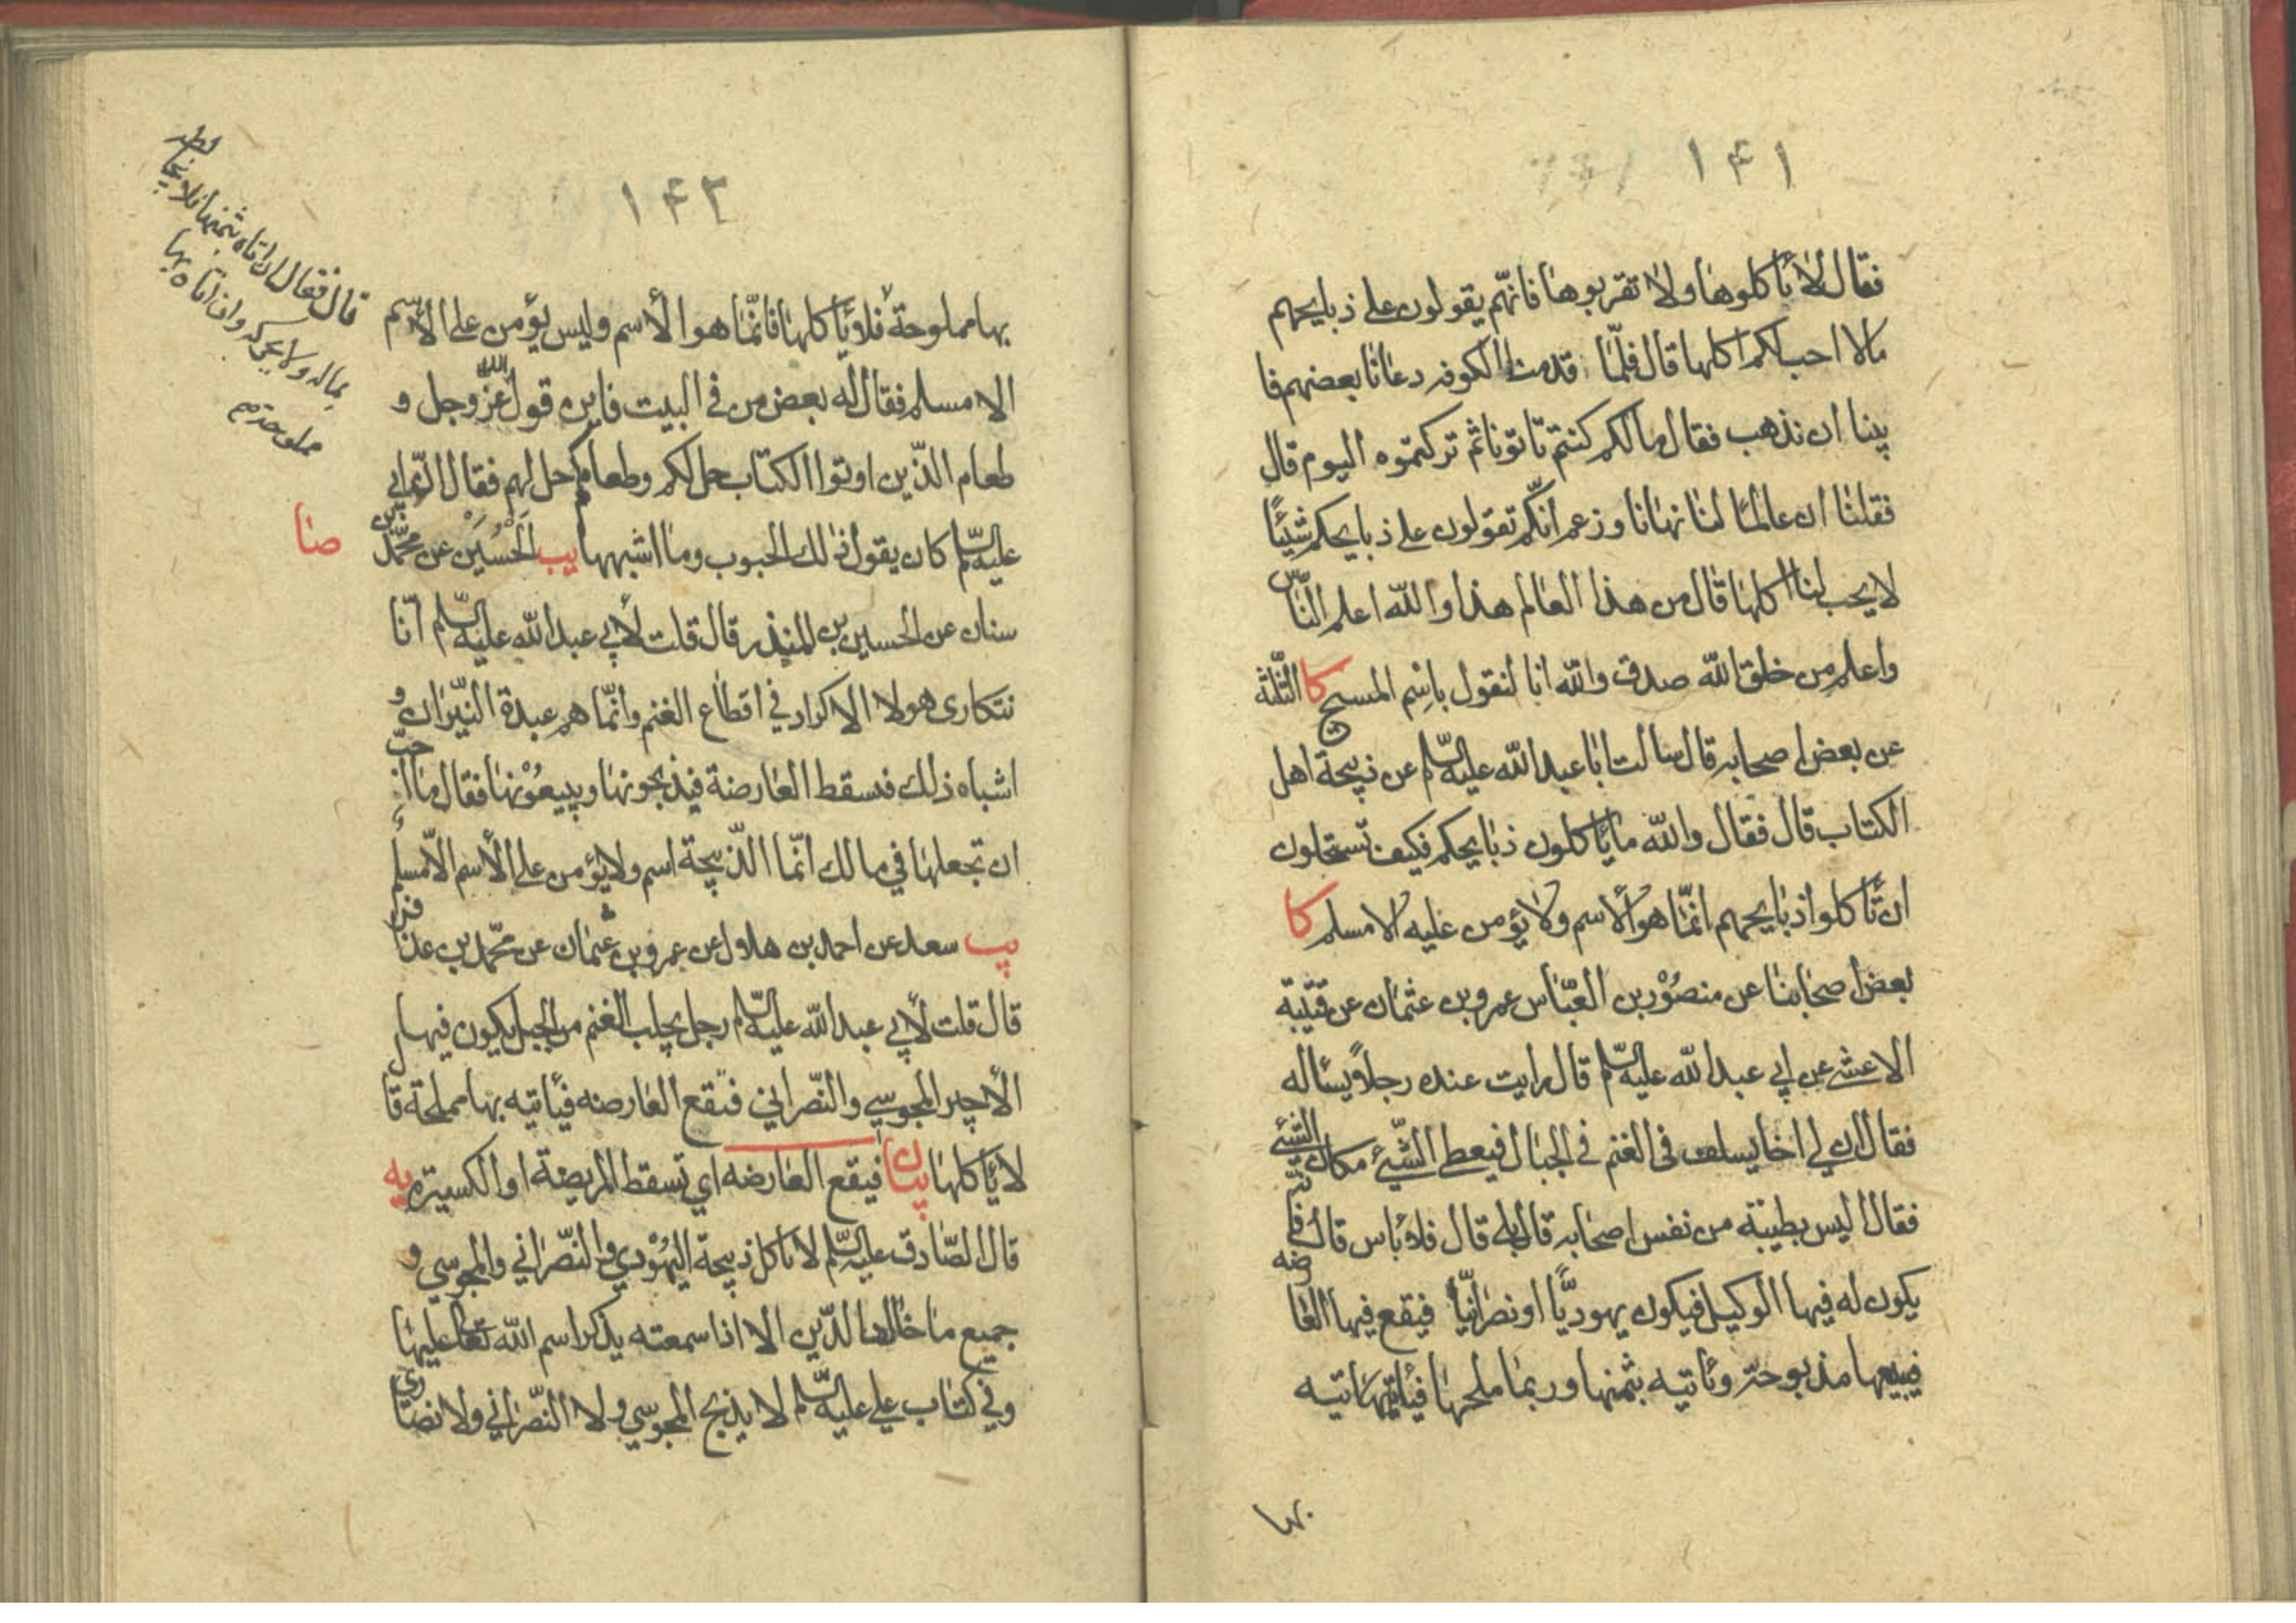 ١۴١
فقال لا تأكلوها ولا تقربوها فانهّم يقولون على ذبايحهم
مالا احب لكم اكلها قال فلمّا قدمنا الكوفه دعانا بعضهم فا
بينا ان نذهب فقال ما لكم كنتم تاتونا ثم تركتموه اليوم قال
فقلنا ان عالمًا لنا نهانا وزعم انّكم تقولون على ذبايحكم شيئًا
لا يحب لنا اكلها قال من هذا العالم هذا والله اعلم النّاس
واعلم من خلق الله صدق والله انا لنقول باسم المسيح كا الثّلثة
عن بعض اصحابه قال سالت ابا عبد الله عليه السّلم عن ذبيحة اهل
الكتاب قال فقال والله ما يأكلون ذبايحكم فكيف تستحلون
ان تأكلوا ذبايحهم انمّا هو الأسم ولا يؤمن عليه الا مسلم كا
بعض اصحابنا عن منصور بن العبّاس عمرو بن عثمان عن قتيبة
الاعشى عن ابي عبد الله عليه السّلم قال رايت عنده رجلاً يسأله
فقال ان لي اخا يسلف فى الغنم في الجبال فيعطى الشّيئ مكان الشّيئ
فقال اليس بطيبة من نفس اصحابه قال بلى قال فلا بأس قال فانّه
يكون له فيها الوكيل فيكون يهوديًّا او نصرانيّاً فيقع فيها العارضه
فيبيعها مذبوحة وتأتيه بثمنها وربما ملحها فيأتيه
بها
١۴٢
بها مملوحة فلا يأكلها فانمّا هو الأسم وليس يؤمن على الأسم
الا مسلم فقال له بعض من في البيت فاين قول الله عزّ وجل و
طعام الذّين اوتوا الكتاب حل لكم وطعامكم حل لهم فقال انّ ابي
عليه السّلم كان يقول ذلك الحبوب وما اشبهها يب الحسين عن محمّد بن
صا
سنان عن الحسين بن المنذر قال قلت لأبي عبد الله عليه السّلم انّا
نتكارى هولا الاكراد في اقطاع الغنم وانمّا هم عبدة النّيران و
اشباه ذلك فتسقط العارضة فيذبحونها ويبيعونها فقال ما احبّ
ان تجعلها في مالك انمّا الذّبيحة اسم ولا يؤمن على الأسم الاّ مسلم
يب سعد عن احمد بن هلال عن عمرو بن عثمان عن محمّد بن عذافر
قال قلت لأبي عبد الله عليه السّلم رجل يجلب الغنم من الجبل يكون فيها
الأجير المجوسي والنّصراني فتقع العارضه فيأتيه بها مملحة قال
لا يأكلها بيان فيقع العارضه اي تسقط المريضة او الكسيرة يه
قال الصّادق عليه السّلم لا تاكل ذبيحة اليهودي والنّصراني والمجوسي و
جميع ما خالف الدّين الا اذا سمعته يذكر اسم الله تعالى عليها
وفي كتاب علي عليه السّلم لا يذبح المجوسي ولا النّصراني ولا نصارى
قال فقال ان اتاه بثمنها فلا يخلطه
بماله ولا يحركه وان اتاه بها
مملوحة م